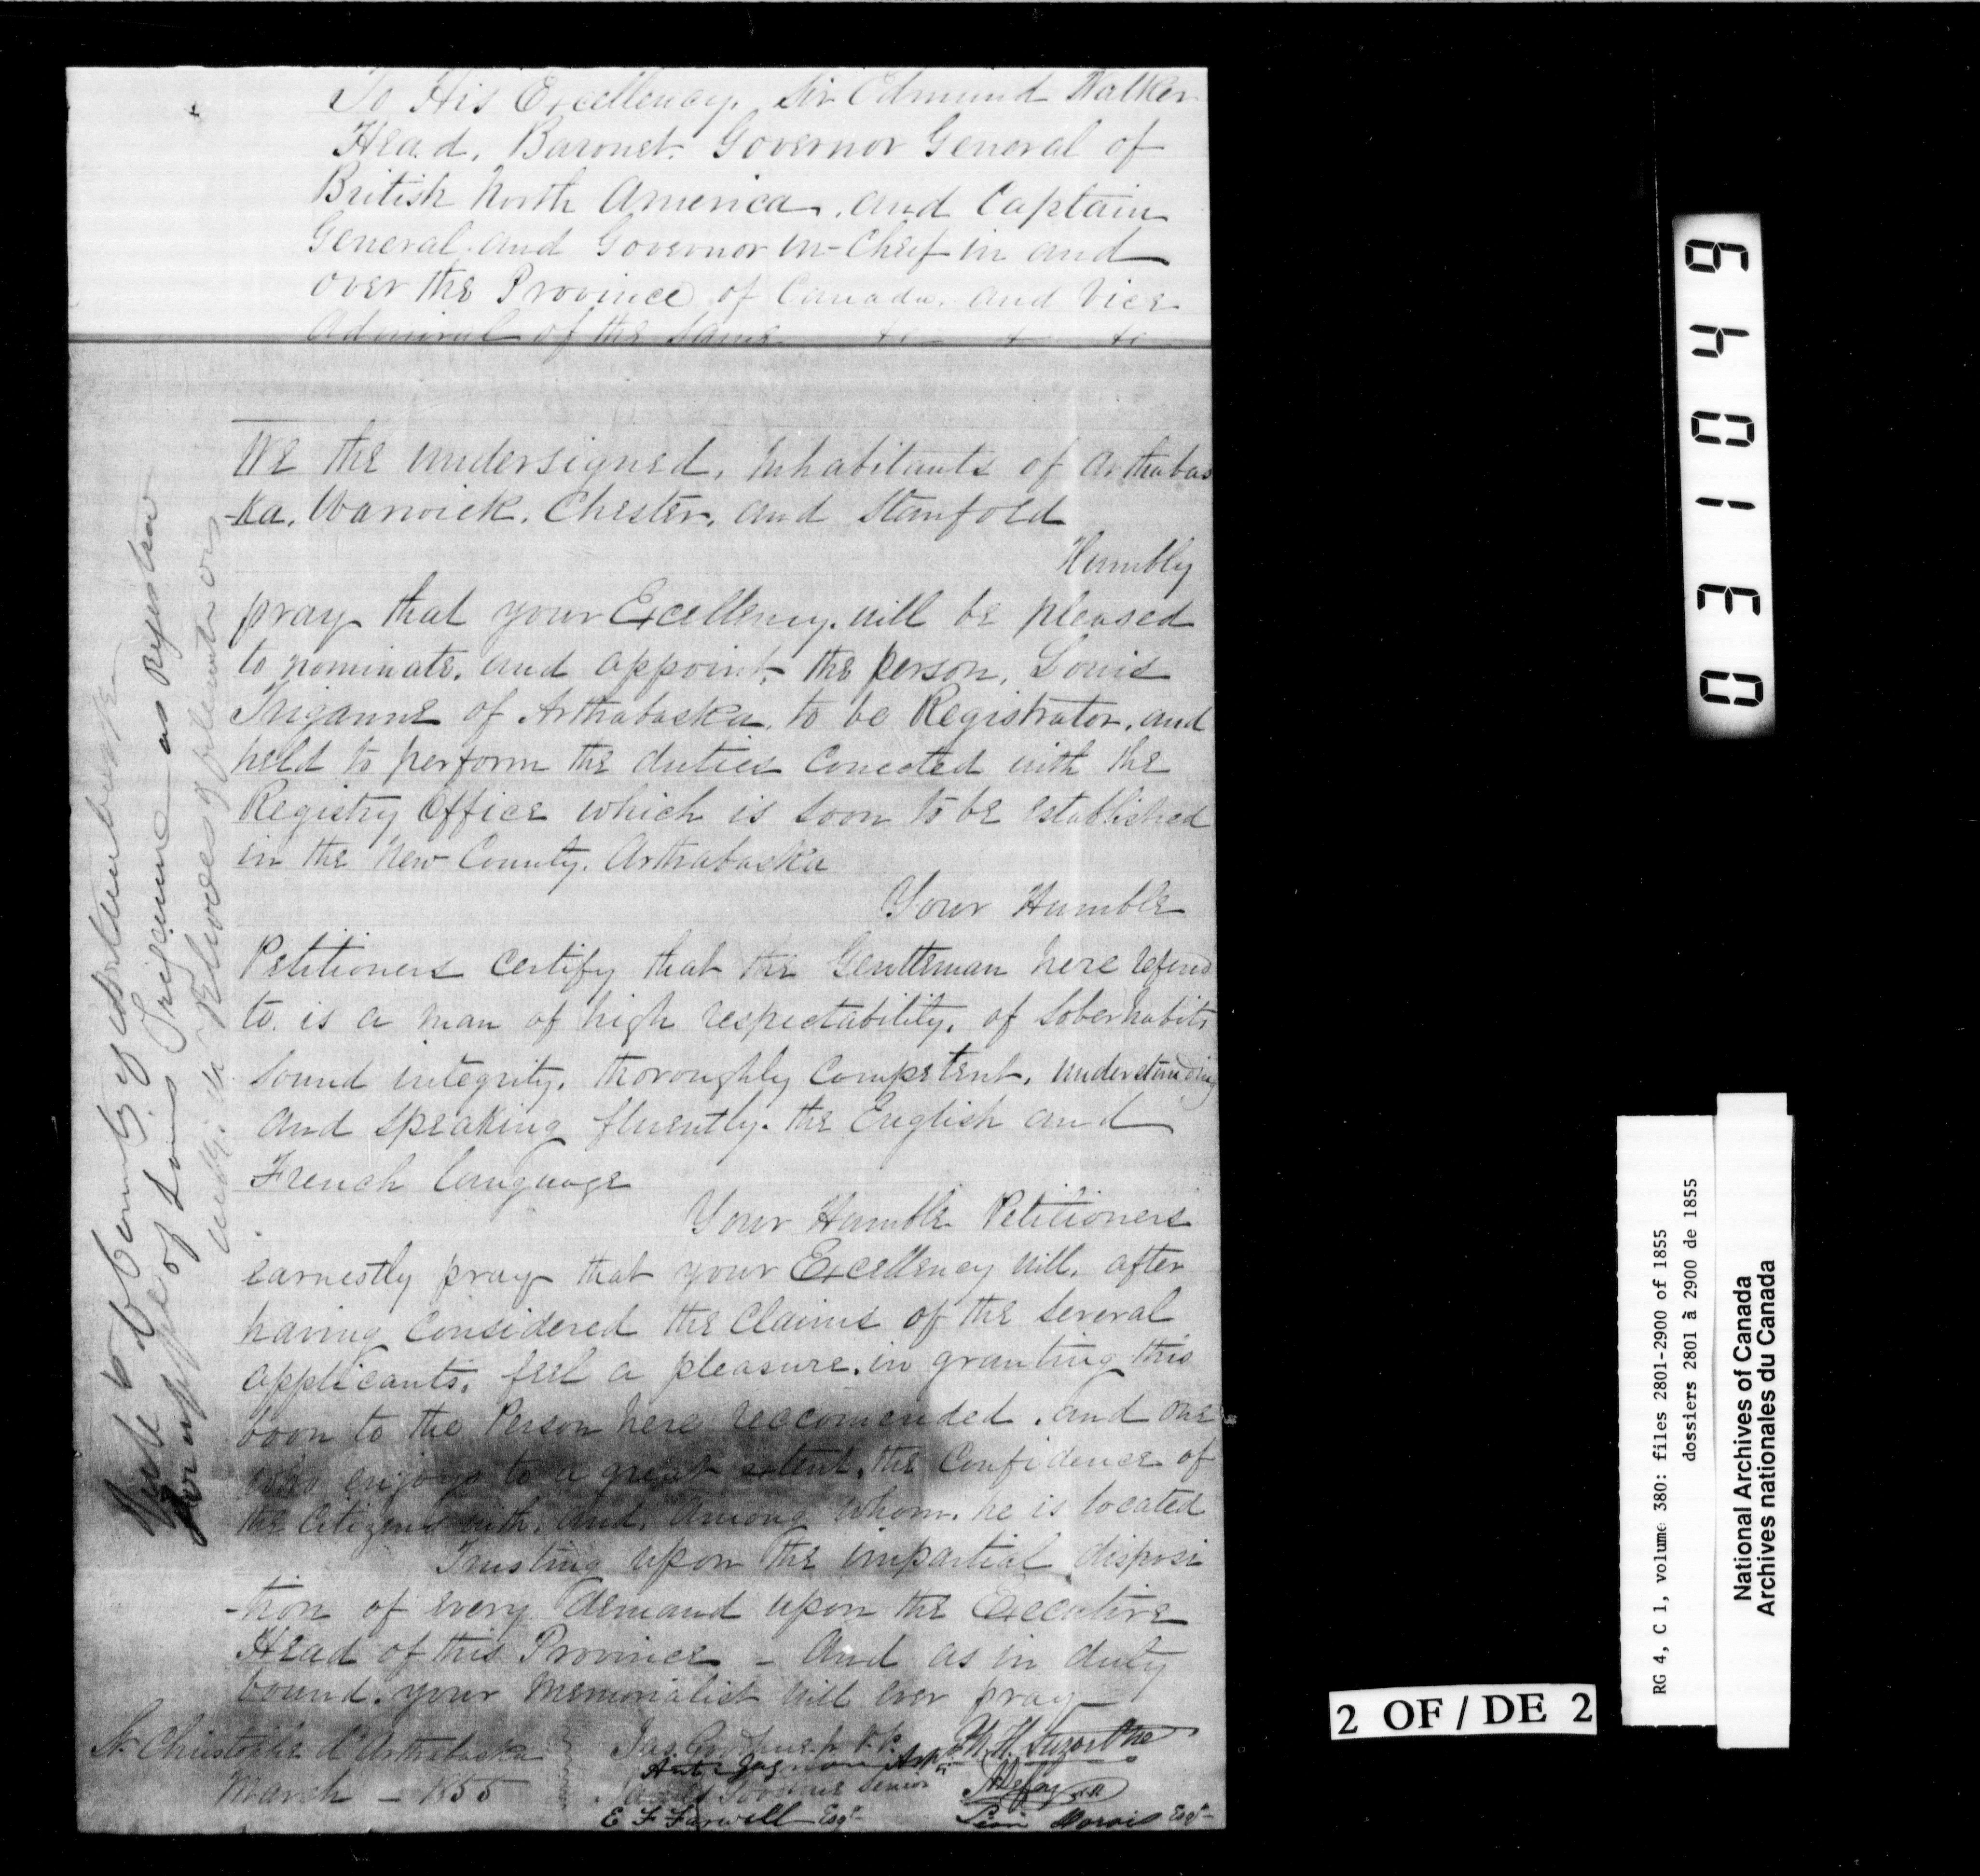 To His Excellency. Sir Edmund Walker
Head. Baronet. Governor General of
British North America. and Captain
General. and Governor in-Cheif in and
over the Province of Canada. and Vice
Admiral of the same &c - & &c
We the undersigned. Inhabitants of Arthabas
-ka. Warwick. Chester. and Stanfold
Humbly
pray that your Excellency. will be pleased
to nominate. and appoint. the person. Louis
Triganne of Arthabaska. to be Registrator. and
held to perform the duties Conected with the
Registry Office which is soon to be established
in the New County. Arthabaska
Your Humble
Petitioners Certify that the Gentleman here refered
to. is a man of high respectability. of Sober habits
Sound integrity. thoroughly Competent. understanding
and speaking fluently. the English and
French language
Your Humble Petitioners
earnestly pray that your Excellency will. after
having Considered the Claims of the several
applicants. feel a pleasure. in granting this
boon to the Person here reccomended. and one
who enjoys to a great extent. the Confidence of
the Citizens with. and. among whom. he is located
Trusting upon the impartial disposi
-tion of every demand upon the Executive
Head of this Province - And as in duty
bound. your Memorialist will ever pray
St. Christophe d'Arthabaska
March - 1855
Jas. Goodhue Jr
Ant. Gagnon
James Goodhue Senior
E F Farwell Esqr
Léon Marois Esqr
County of
of Louis Triganne as Registrar
031049
2 OF / DE 2
RG 4, C 1, volume 380: files 2801-2900 of 1855
dossiers 2801 à 2900 de 1855
National Archives of Canada
Archives nationales du Canada